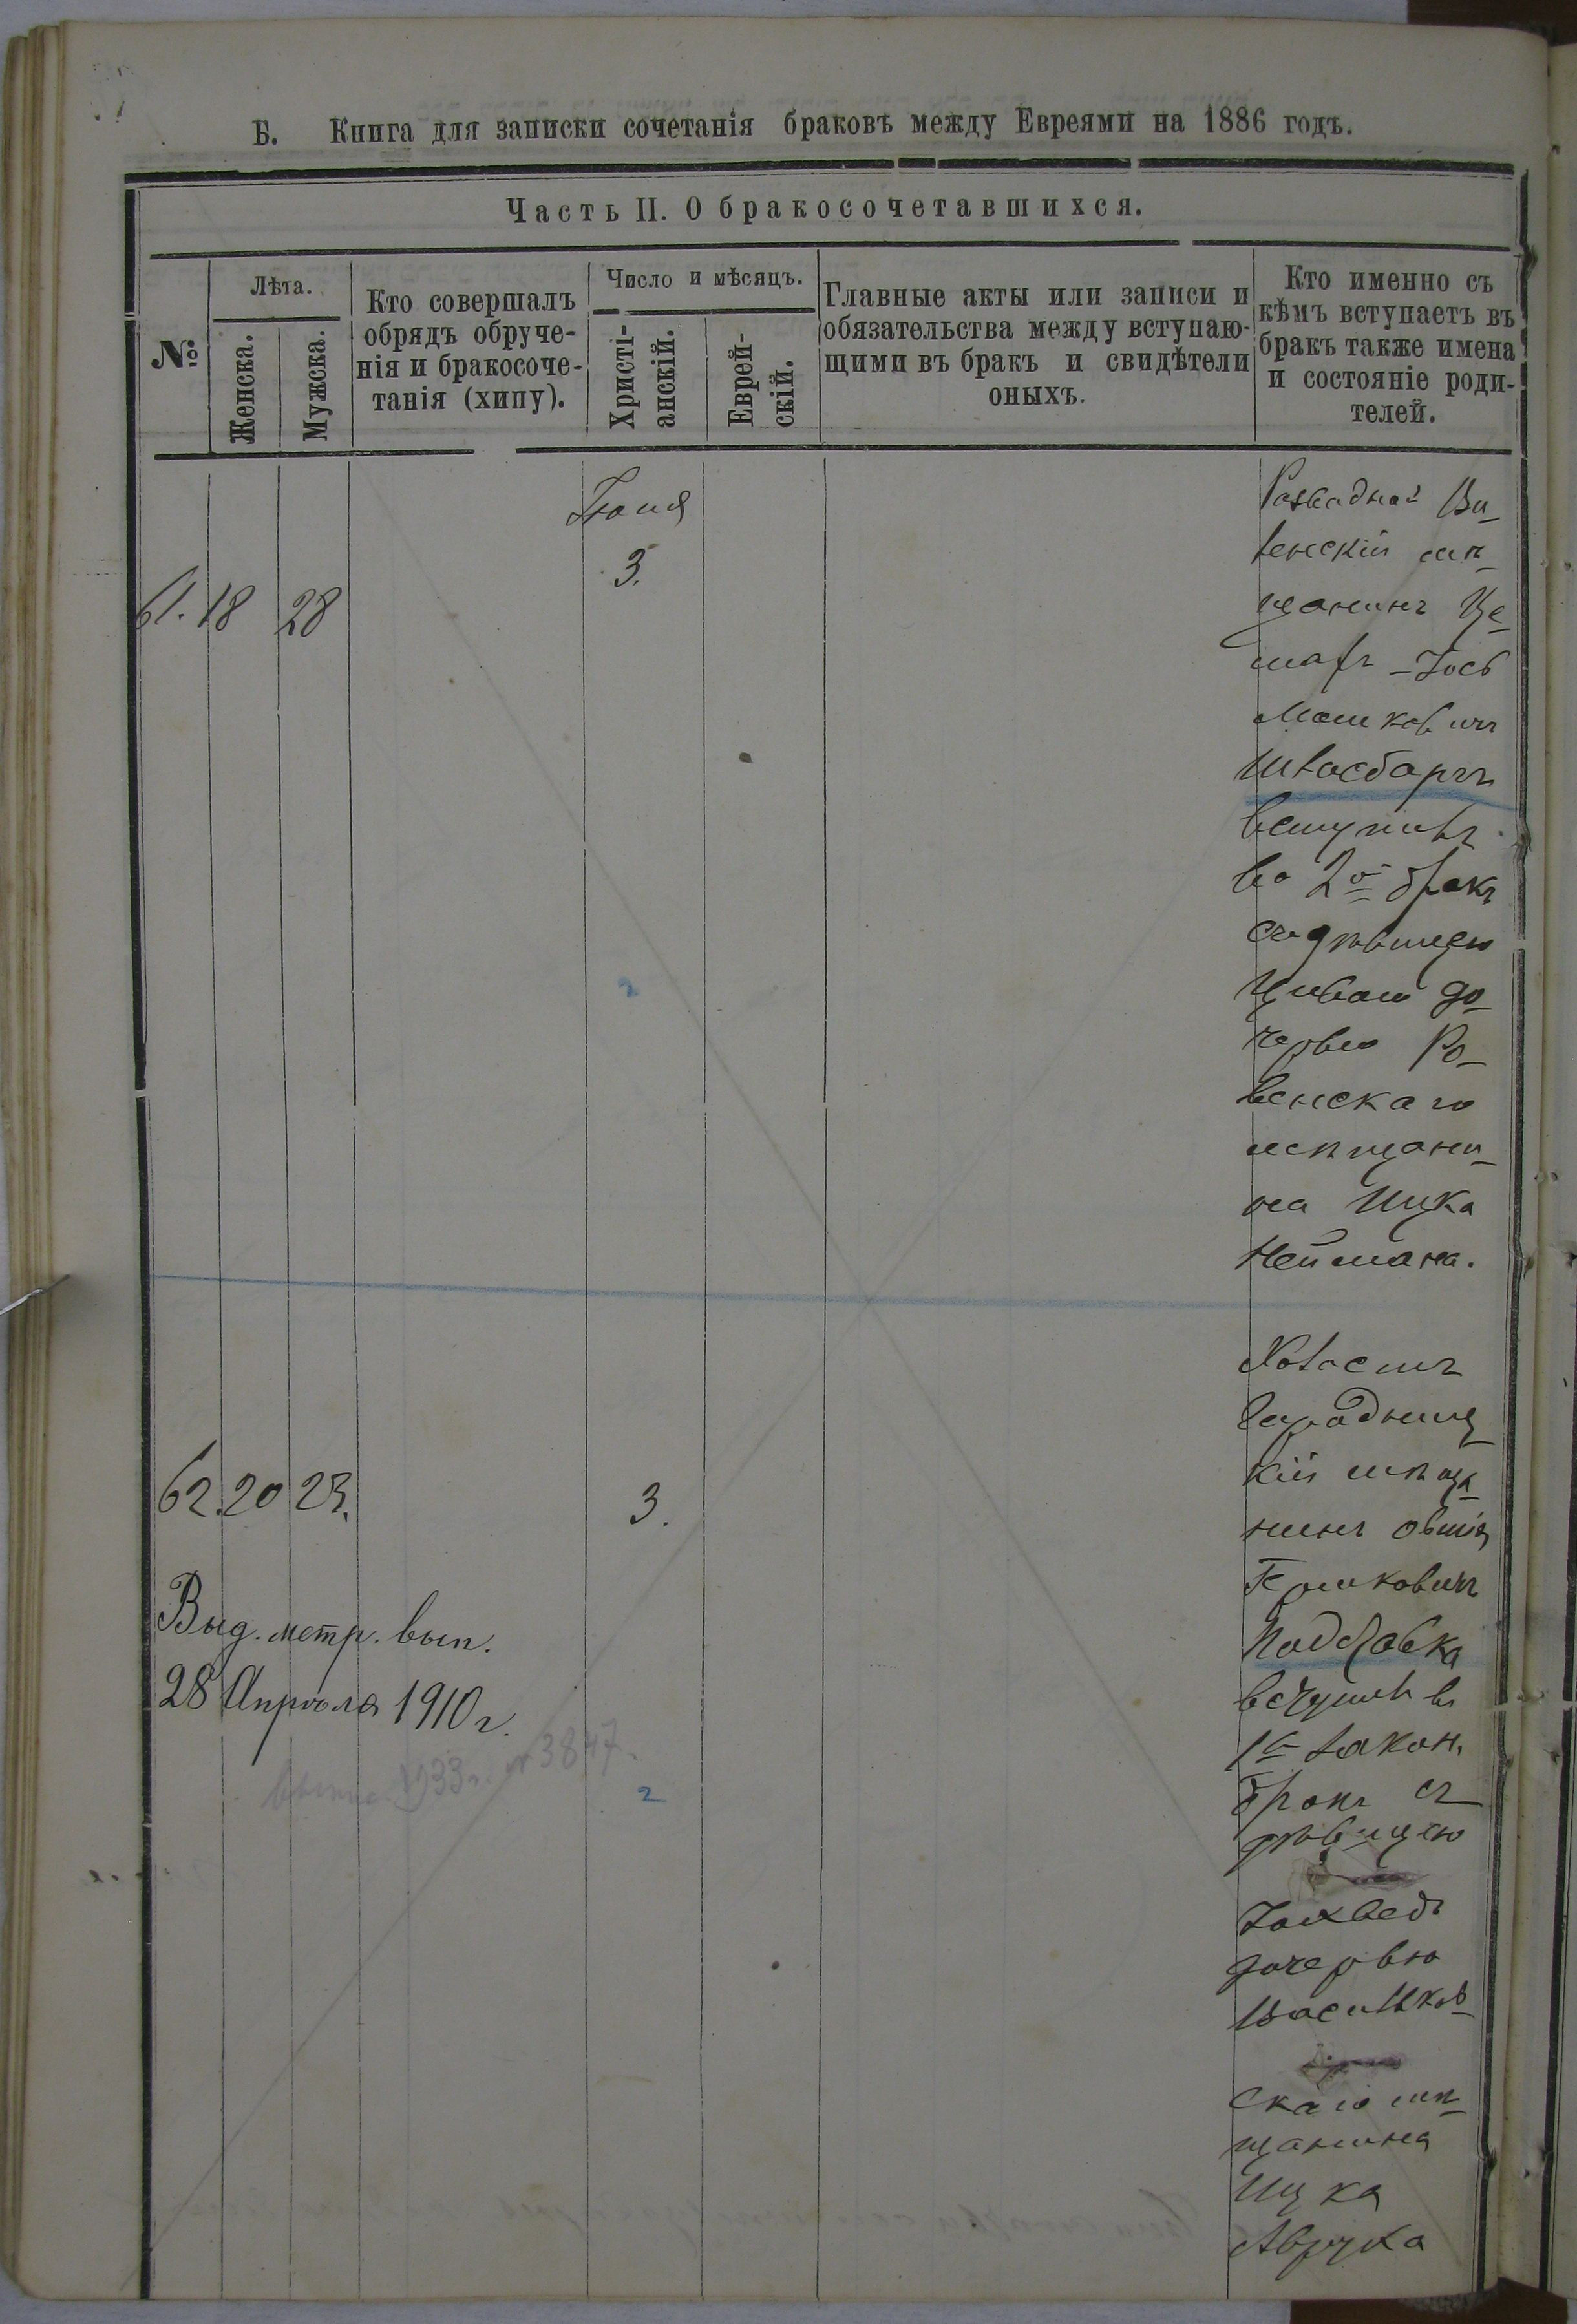 Б. Книга для записки сочетанія браковъ между Евреями на 1886 годъ.
Часть II. О бракосочетавшихся.
№
Лѣта.
Женска.
Мужска.
Кто совершалъ
обрядъ обруче-
нія и бракосоче-
танія (хипу).
Число и мѣсяцъ.
Христі-
анскій.
Еврей-
скій.
Главные акты или записи и
обязательства между вступаю-
щими въ бракъ и свидѣтели
оныхъ.
Кто именно съ
кѣмъ вступаетъ въ
бракъ также имена
и состояніе роди-
телей.
Іюня
3.
61. 18 28
Ви-
ленскій мѣ-
щанинъ Це-
махъ-Іось
Мошковичъ
вступилъ
во 2й бракъ
съ дѣвицею
Цивою до-
черью Ро-
венскаго
мѣщани-
на Ицка
Неймана.
Холостъ
Городниц-
кій мѣща-
нинъ Овшія
Гершковичъ
вступилъ въ
1й закон.
бракъ съ
дѣвицею
Іохведъ
дочерью
Васильков-
скаго мѣ-
щанина
Ицка
Авруха
62. 20 23.
3.
Выд. метр. вып.
28 Апрѣля 1910 г.
1933 г. № 3847.
2
2